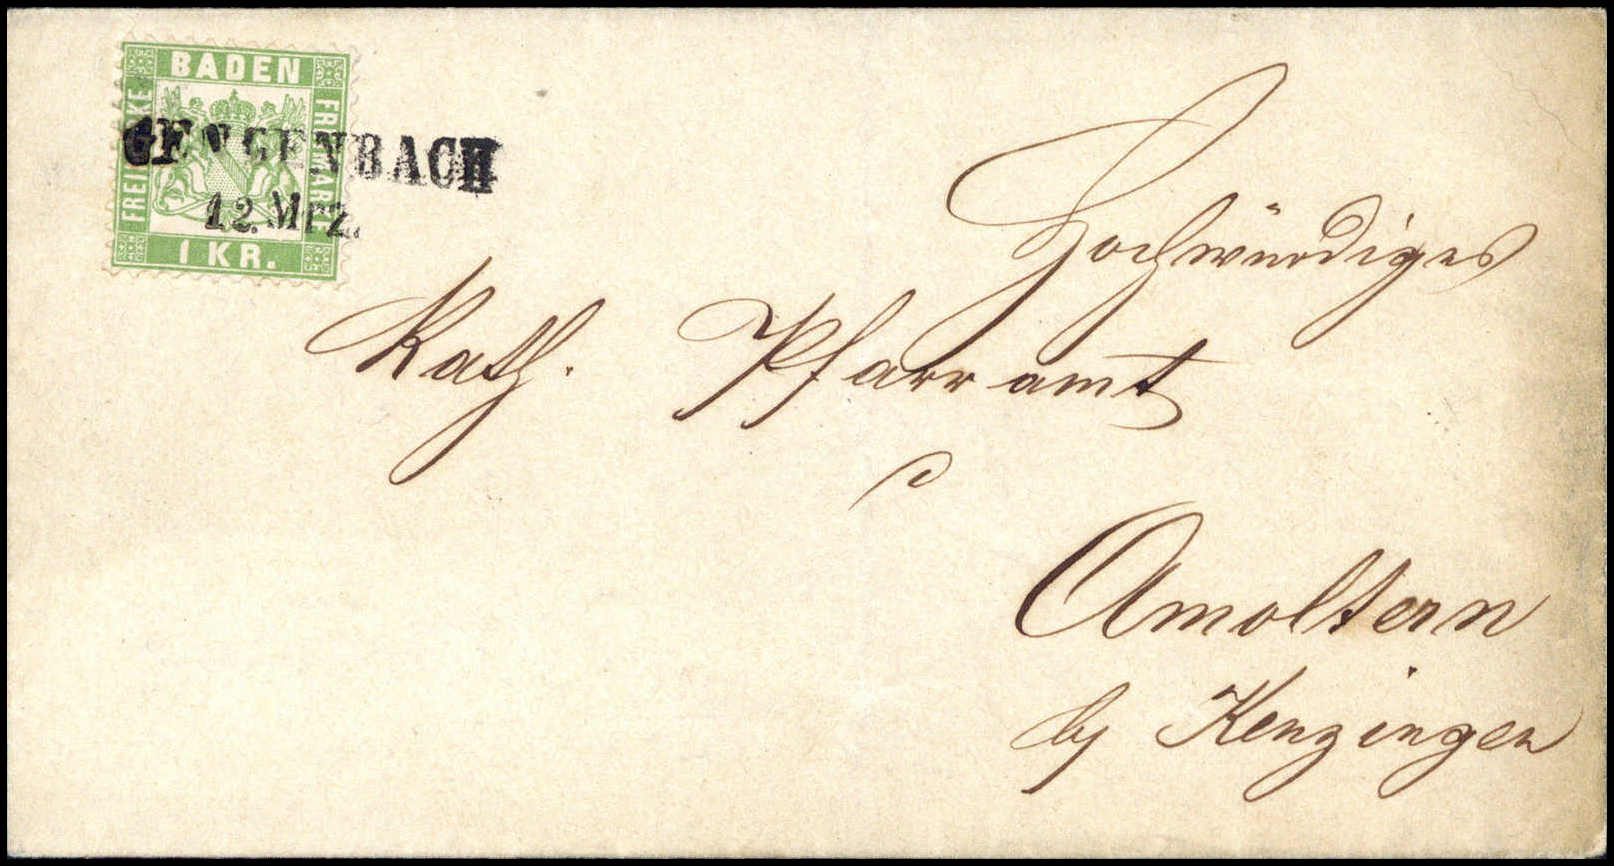 BADEN
FREIMARKE
FREIMARKE
1 KR.
GENGENBACH
12. Mrz.
Hochwürdiges
Kath. Pfarramt
Amoltern
by Kenzingen